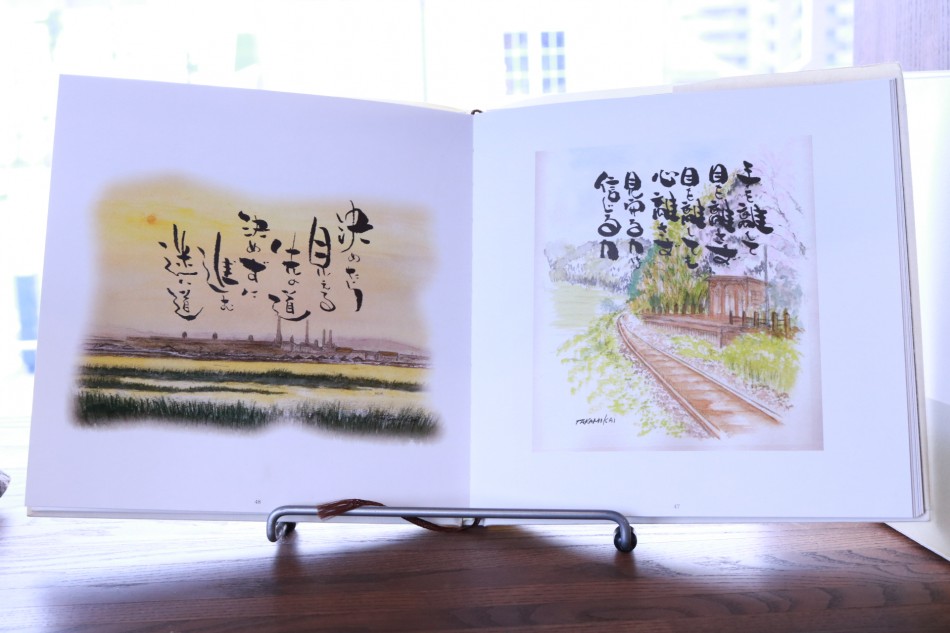 決めたら
見える
先の道
決めずに
進む
迷い道
46
手を離して
目を離さず
目を離しても
心離さず
見守る力
信じる力
47